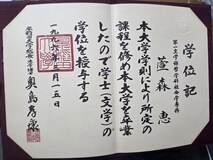 学位記
第一文学部哲学科社会学専修
萱森 恵
本大学学則により所定の
課程を修め本大学を卒業
したので学士(文学)の
学位を授与する
一九九六年三月二五日
奥島孝康